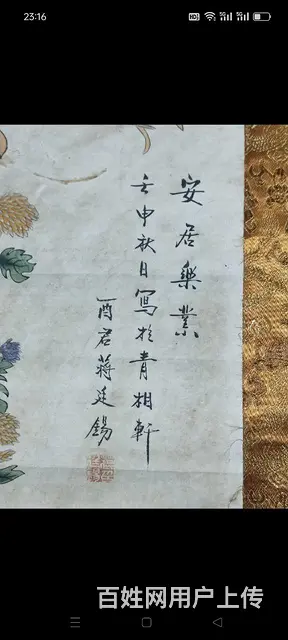 23:16
安居樂業
壬申秋日寫於青相軒
酉君蔣廷錫
百姓网用户上传